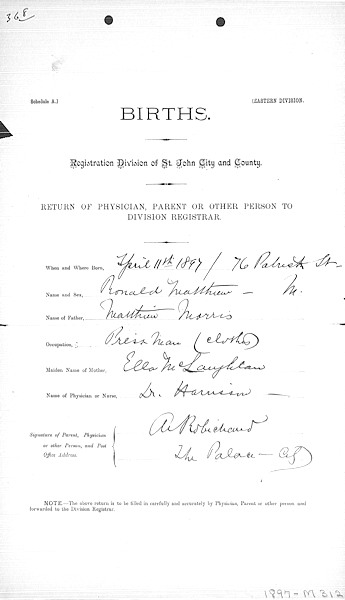 368
Schedule A.]
[EASTERN DIVISION.
BIRTHS.
Registration Division of St. John City and County.
RETURN OF PHYSICIAN, PARENT OR OTHER PERSON TO
DIVISION REGISTRAR.
When and Where Born, April 11th 1897 / 76 Patrick St-
Name and Sex, Ronald Matthew - M.
Name of Father, Matthew Morris
Occupation, Press Man (clothes)
Maiden Name of Mother, Ella McLaughlan
Name of Physician or Nurse, Dr. Harrison -
Signature of Parent, Physician
or other Person, and Post
Office Address.
A Robichaud
The Palace - City
NOTE.—The above return is to be filled in carefully and accurately by Physician, Parent or other person and
forwarded to the Division Registrar.
1897-M 312